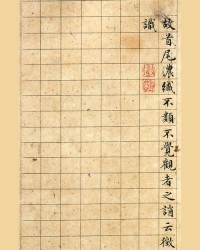 故首尾濃纖不類不覺觀者之誚云徵
識